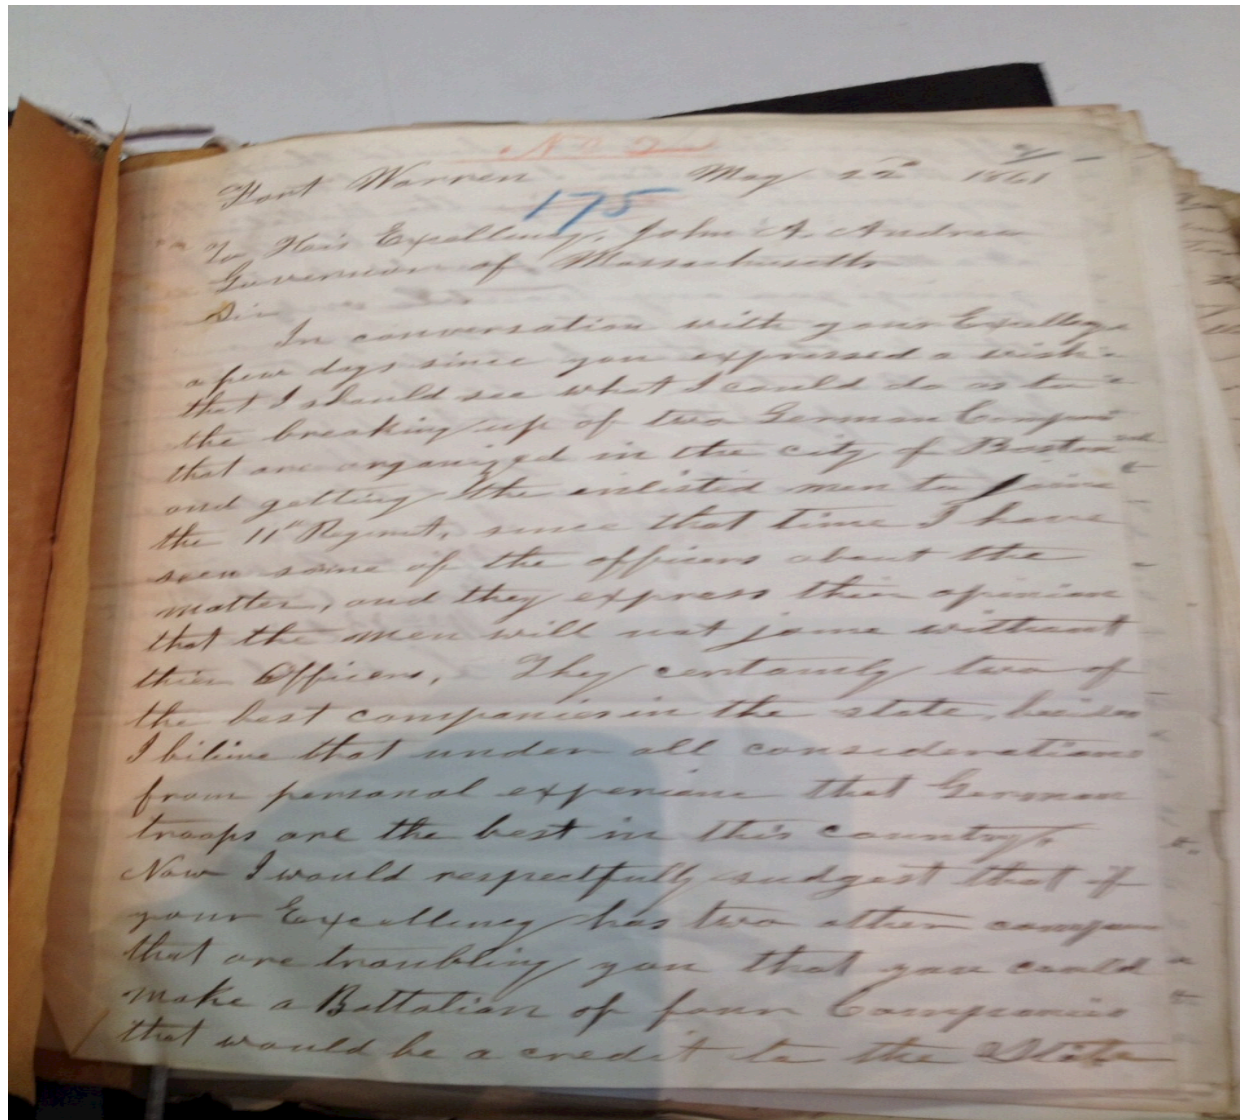 No 2
2
Fort Warren May 22d 1861
175
To His Excellency, John A. Andrew
Governor of Massachusetts
Sir
In conversation with your Excellency
a few days since you expressed a wish
that I should see what I could do as to
the breaking up of two German Compa
that are organized in the city of Boston
and getting the enlisted men to joine
the 11th Regimt, since that time I have
seen some of the officers about the
matter, and they express thier opinion
that the men will not joine without
thier Officers. They certainly two of
the best companies in the state, besides
I bilieve that under all considerations
from personal experience that German
troops are the best in this country.
Now I would respectfully sudgest that if
your Excellency has two other compan
that are troubling you that you could
make a Battalion of four Companies
that would be a credit to the State